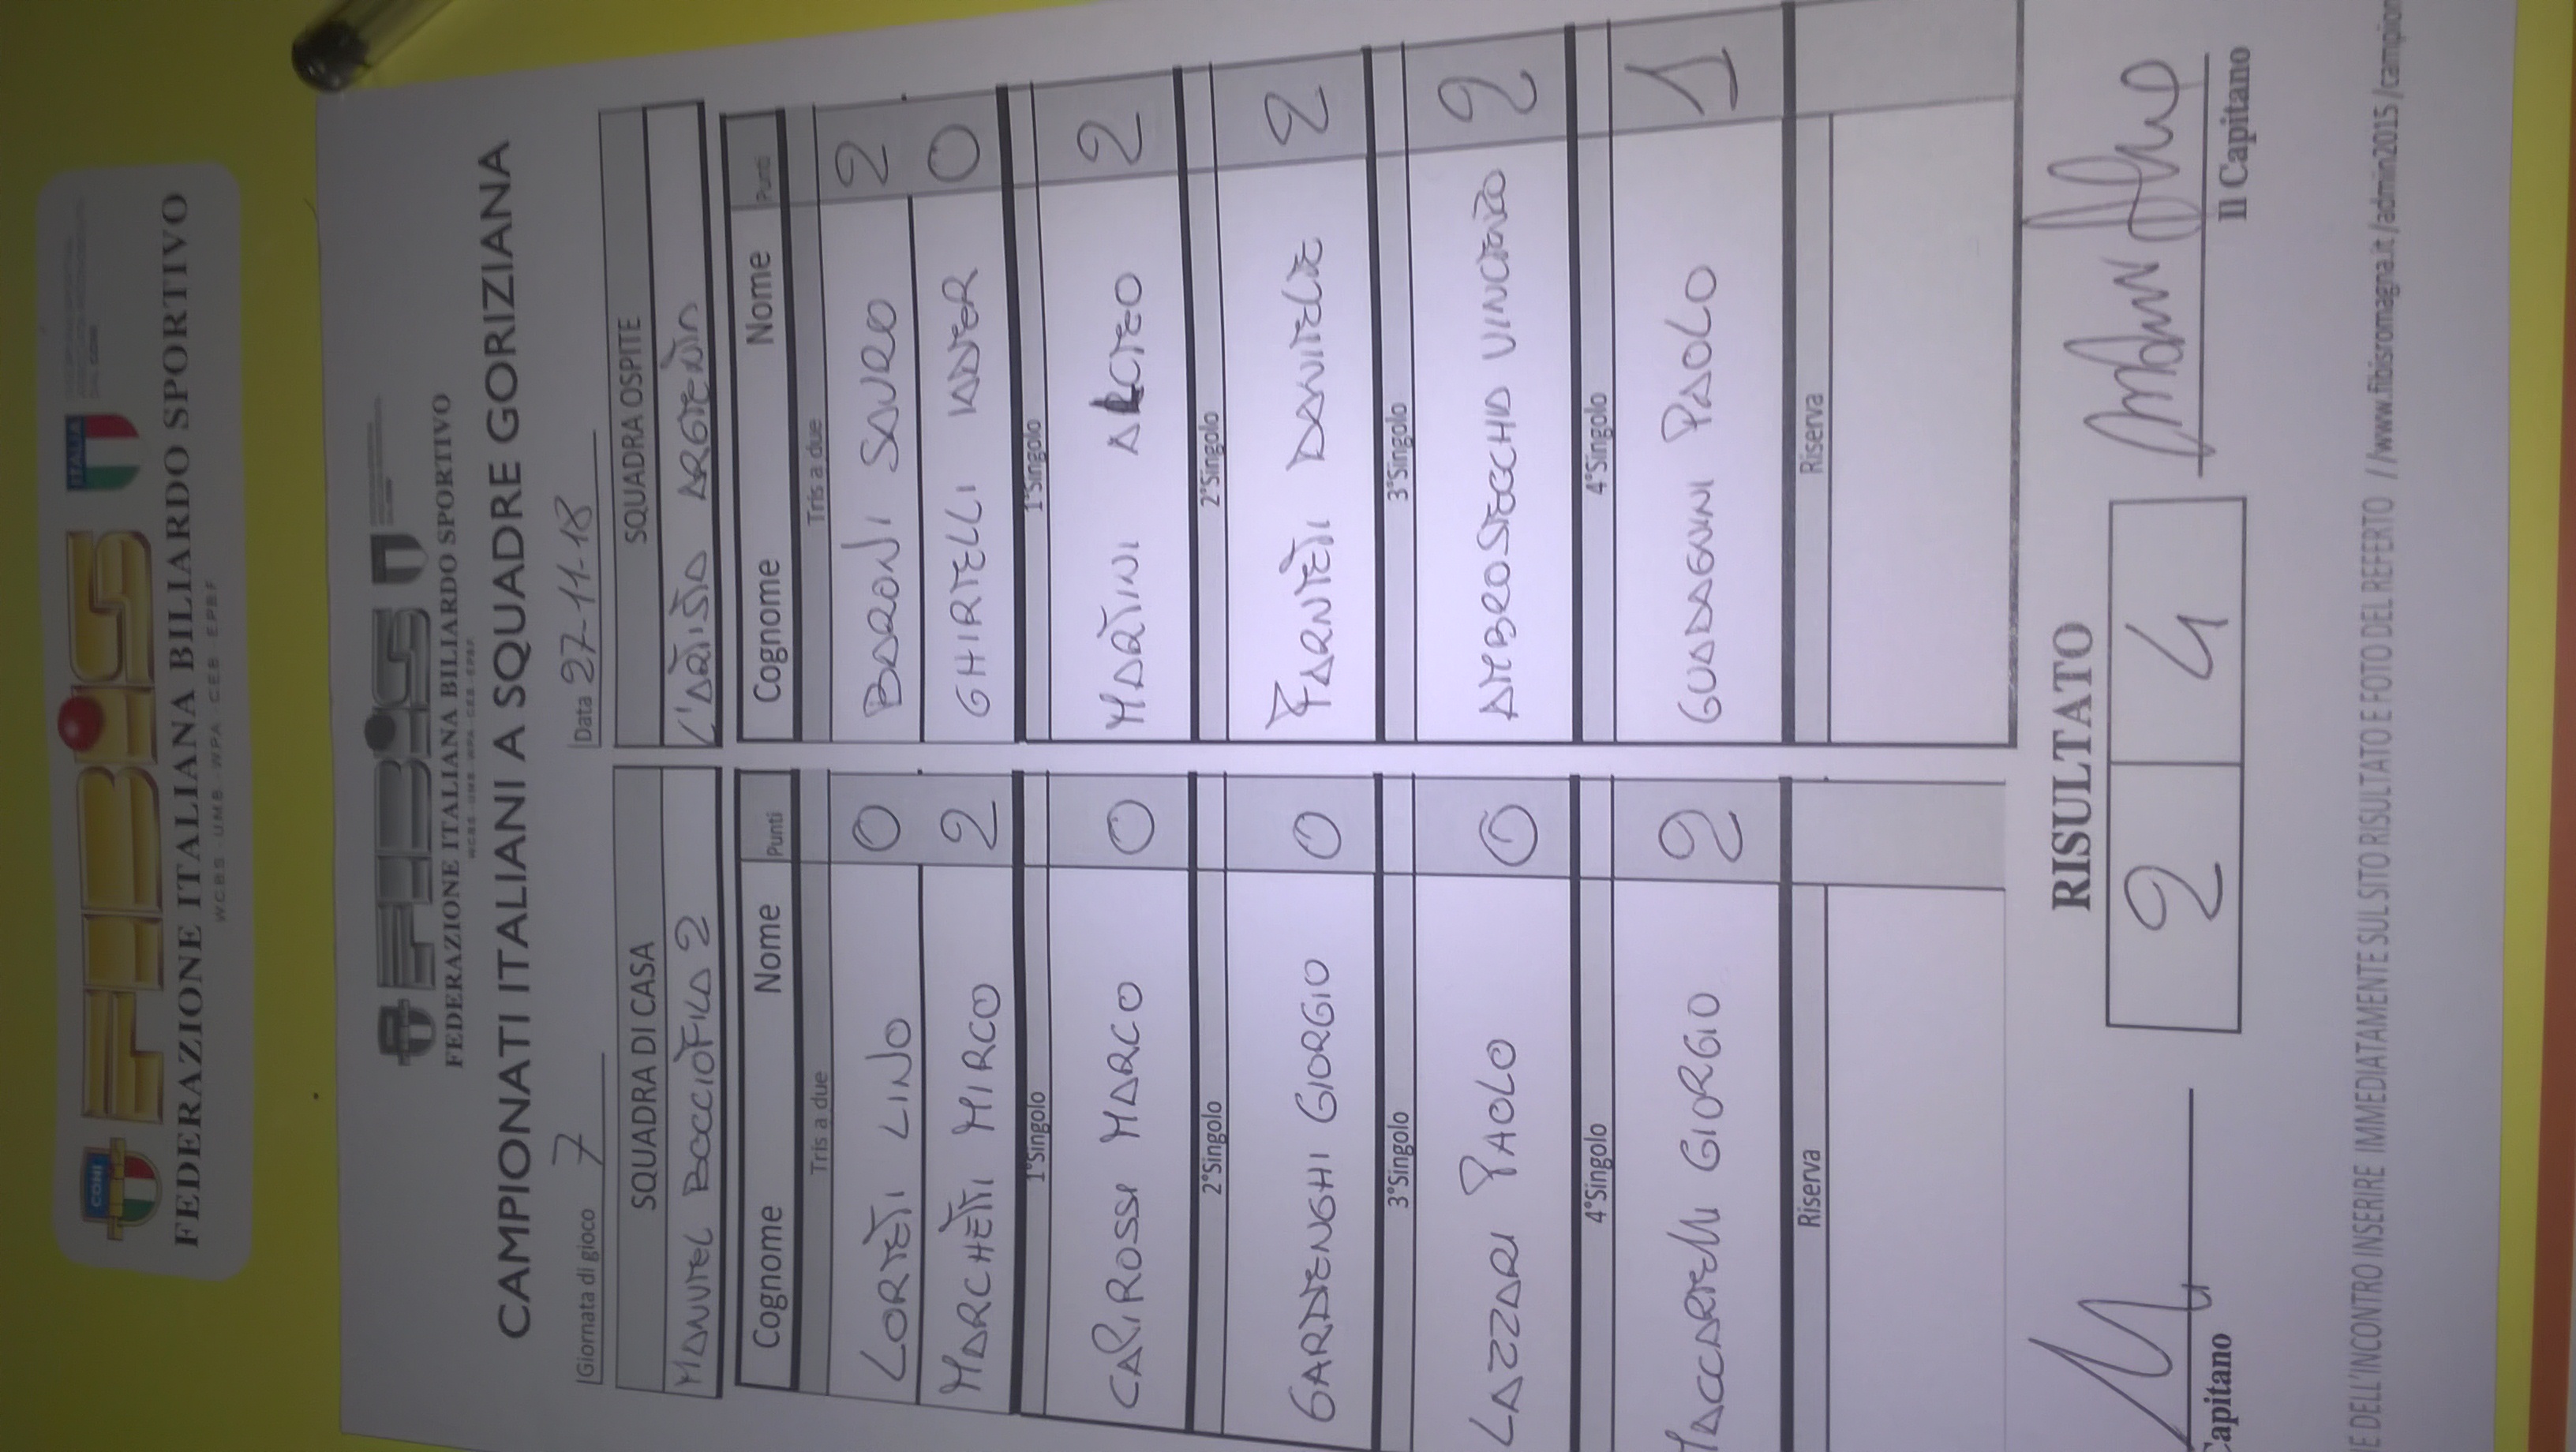 CONI
FIBiS
ITALIA
FEDERAZIONE ITALIANA BILIARDO SPORTIVO
WCBS - UMB - WPA - CEB - EPBF
FIBiS
FEDERAZIONE ITALIANA BILIARDO SPORTIVO
WCBS - UMB - WPA - CEB - EPBF
CAMPIONATI ITALIANI A SQUADRE GORIZIANA
Giornata di gioco 7 Data 27-11-18
SQUADRA DI CASA SQUADRA OSPITE
MANUEL BOCCIOFILA 2 L'ARISTA ARGENTA
Cognome Nome Punti Cognome Nome Punti
Tris a due Tris a due
LORETI LINO 0 BARONI SAURO 2
MARCHETTI MIRCO 2 GHIRELLI IADER 0
1°Singolo 1°Singolo
CAPIROSSI MARCO 0 MARTINI ALCEO 2
2°Singolo 2°Singolo
GARDENGHI GIORGIO 0 FARNETI DANIELE 2
3°Singolo 3°Singolo
LAZZARI PAOLO 0 AMBROSECCHIA VINCENZO 2
4°Singolo 4°Singolo
MACCARELLI GIORGIO 2 GUADAGNINI PAOLO 1
Riserva Riserva
RISULTATO
2 4
Capitano Il Capitano
E DELL'INCONTRO INSERIRE IMMEDIATAMENTE SUL SITO RISULTATO E FOTO DEL REFERTO //www.fibisromagna.it/admin2015/campion